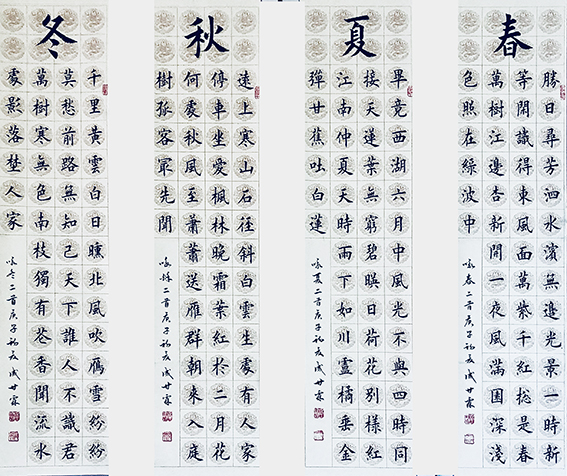 春
勝日尋芳泗水濱無邊光景一時新
等閒識得東風面萬紫千紅捴是春
萬樹江邊杏新開一夜風滿园深淺
色照在綠波中
咏春二首庚子初夏成甘霖
夏
畢竟西湖六月中風光不與四時同
接天蓮葉無窮碧暎日荷花別樣紅
江南仲夏天時雨下如川盧橘垂金
彈甘蕉吐白蓮
咏夏二首庚子初夏成甘霖
秋
遠上寒山石徑斜白雲生處有人家
停車坐愛楓林晚霜葉紅於二月花
何處秋風至蕭蕭送雁群朝來入庭
樹孤客冣先聞
咏秌二首庚子初夏成甘霖
冬
千里黃雲白日曛北風吹鴈雪紛紛
莫愁前路無知己天下誰人不識君
萬樹寒無色南枝獨有花香聞流水
處影落埜人家
咏冬二首庚子初夏成甘霖